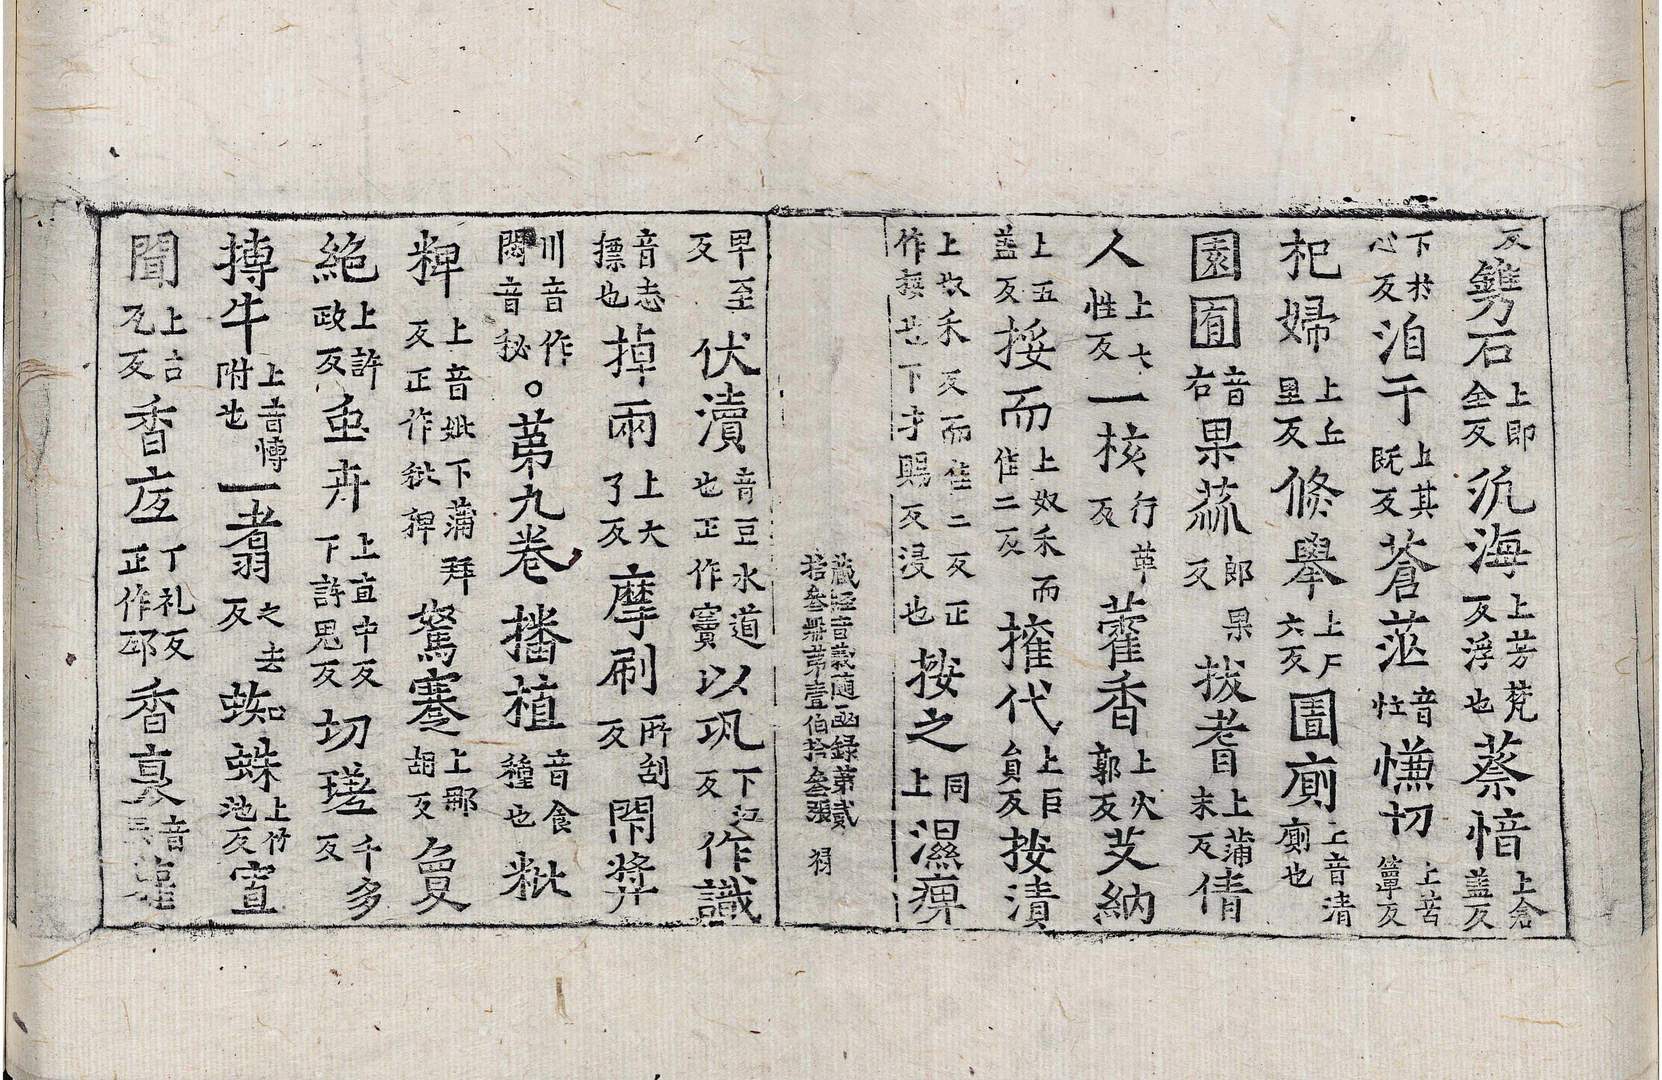 反鐫石上即全反汎海上芳梵反浮也蔡愔上倉蓋反
下於心反洎于上其既反蒼茫音忙慊切上苦簟反
杞婦上丘里反倏舉上尸六反圊廁上音清廁也
園囿音右果蓏郎果反拔者上蒲末反倩
人上七性反一核行革反藿香上火郭反艾納
上五蓋反挼而上奴禾而隹二反擁代上巨負反按漬
上奴禾反而隹二反正作挼也下才賜反浸也按之上同濕痺
藏經音義隨函錄第貳拾叁冊第壹伯拾叁張
卑至反伏瀆音豆水道也正作竇以巩下江反作識
音志摽也掉兩上大了反摩刷所刮反閇弊
川音作閇音秘。苐九卷播植音食種也粃
粺上音妣下蒲拜反正作秕稗駑蹇上那胡反敻
絕上許政反虫卉上直中反下許思反切瑳千多反
搏牛上音愽附也一翥之去反蜘蛛上竹池反寘
聞上古反香㡳丁礼反正作邸香音